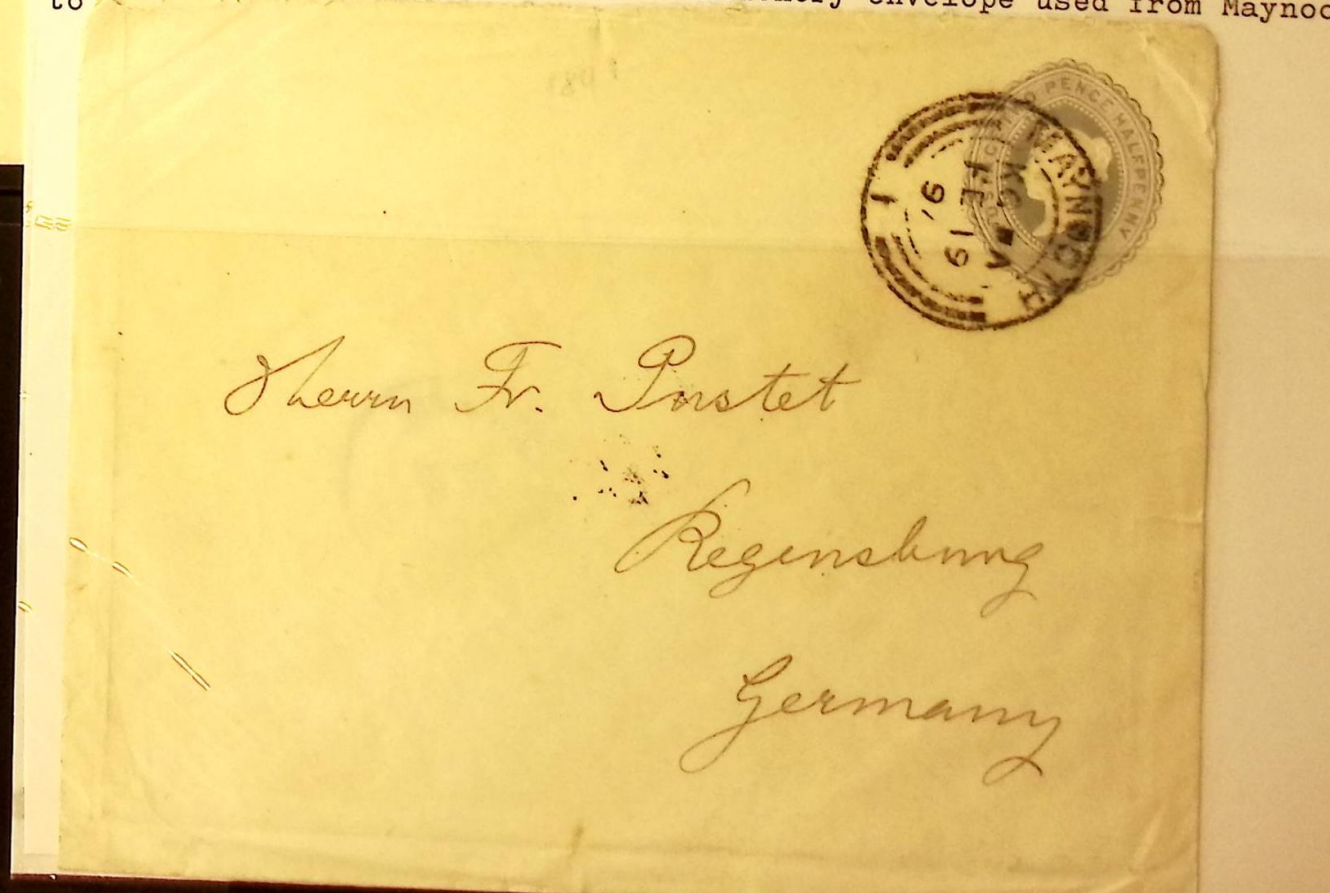 to envelope used from Maynoo
POSTAGE TWO PENCE HALFPENNY
MAYNOOTH
KC
A
FE 19
91
1
Herrn Fr. Pustet
Regensburg
Germany